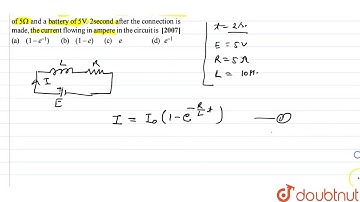 of 5Ω and a battery of 5V. 2second after the connection is
made, the current flowing in ampere in the circuit is [2007]
(a) (1–e⁻¹) (b) (1–e) (c) e (d) e⁻¹
t = 2s.
E = 5V
R = 5Ω
L = 10H.
L R
I
E
I = I₀ (1 - e^{-R/L t}) — ①
doubtnut